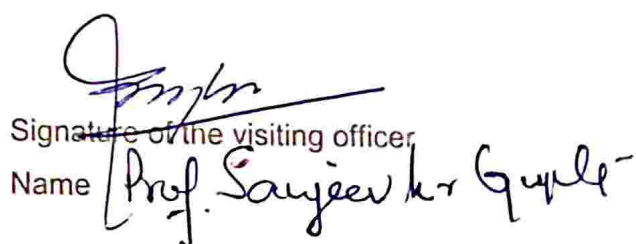 Signature of the visiting officer
Name Prof. Sanjeev kr Gupta